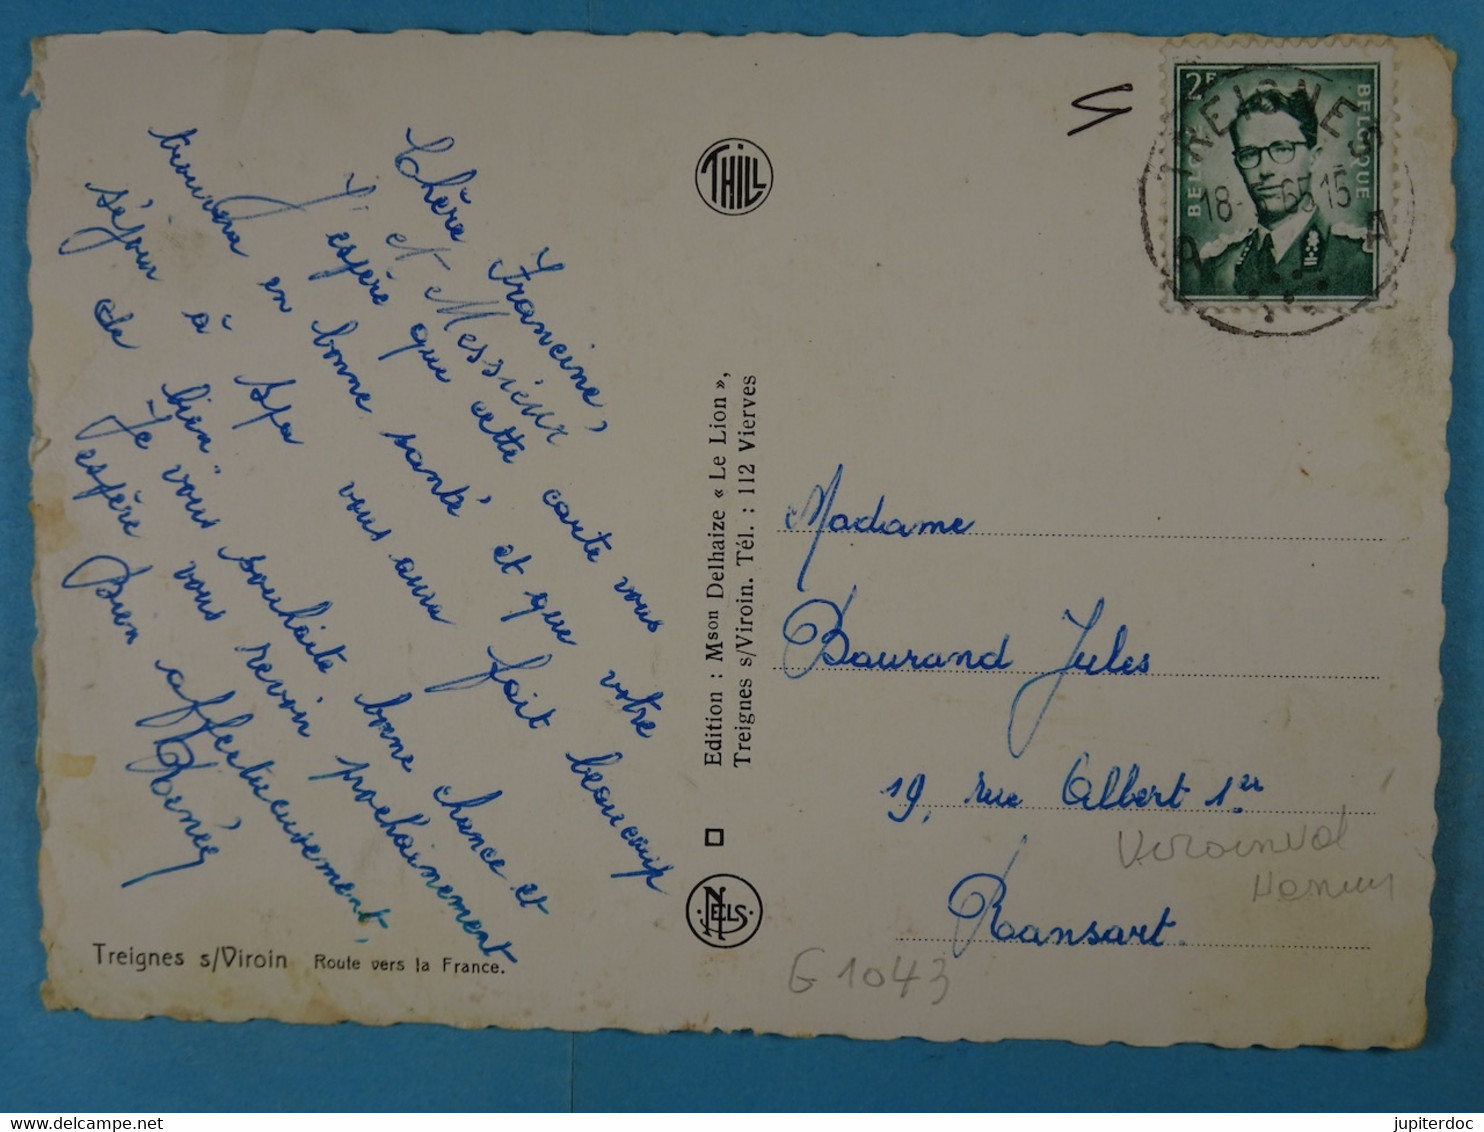 Chère Francine,
et Messieur
J'espère que cette carte vous
trouvera en bonne santé et que votre
séjour à Spa vous aura fait beaucoup
de bien.
Je vous souhaite bonne chance et
espère vous revoir prochainement
Bien affectueusement,
Renée
Treignes s/Viroin Route vers la France.
THILL
Edition : Mson Delhaize « Le Lion »,
Treignes s/Viroin. Tél. : 112 Vierves
NELS
2F
BELGIE BELGIQUE
TREIGNES
18- 65 15
A A
Madame
Bourand Jules
19, rue Albert 1er
Ransart.
Viroinval
G 1043
www.delcampe.net
jupiterdoc